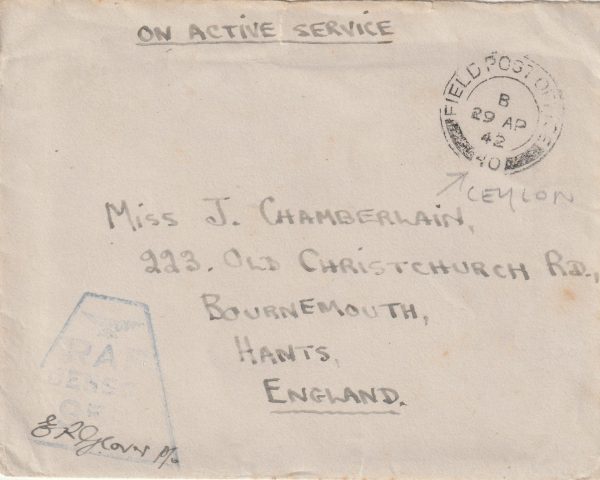 ON ACTIVE SERVICE
FIELD POST OFFICE
B
29 AP
42
CEYLON
Miss J. Chamberlain,
223. Old Christchurch Rd.,
Bournemouth,
Hants,
England.
RAF
CENSOR